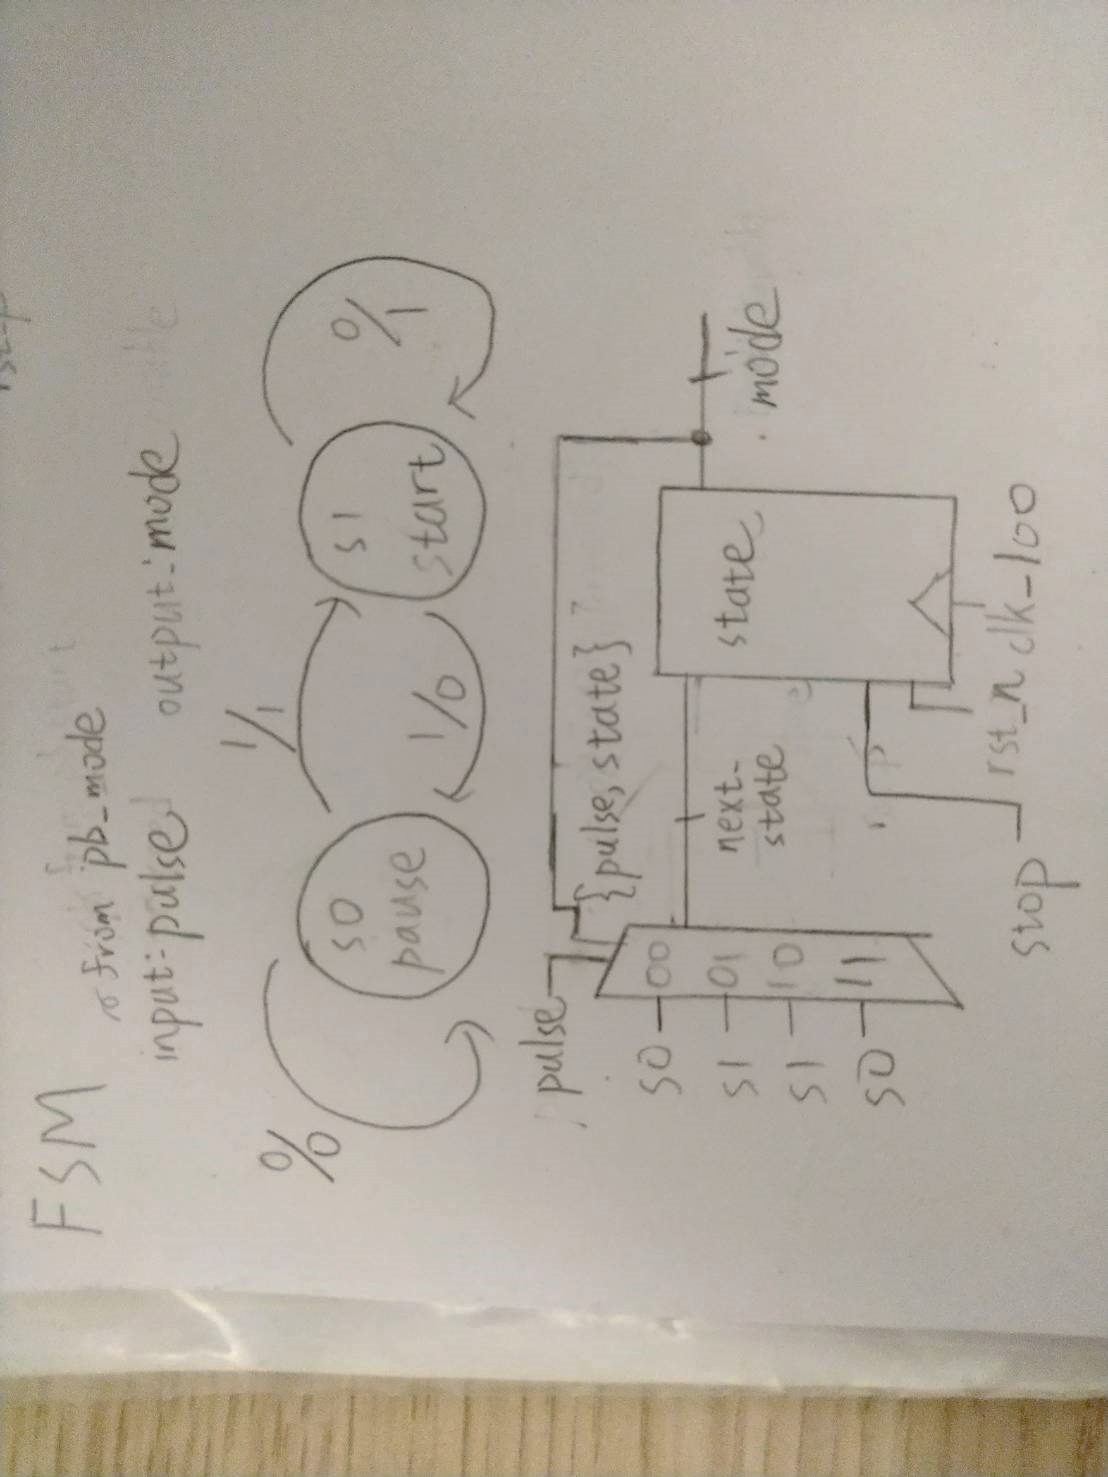 FSM
from pb_mode
input: pulse output: mode
1/1
0/0
S0
pause
S1
start
0/1
1/0
pulse
{pulse, state}
S0 00
S1 01
S1 10
S0 11
next_
state
state
mode
stop
rst_n clk_100